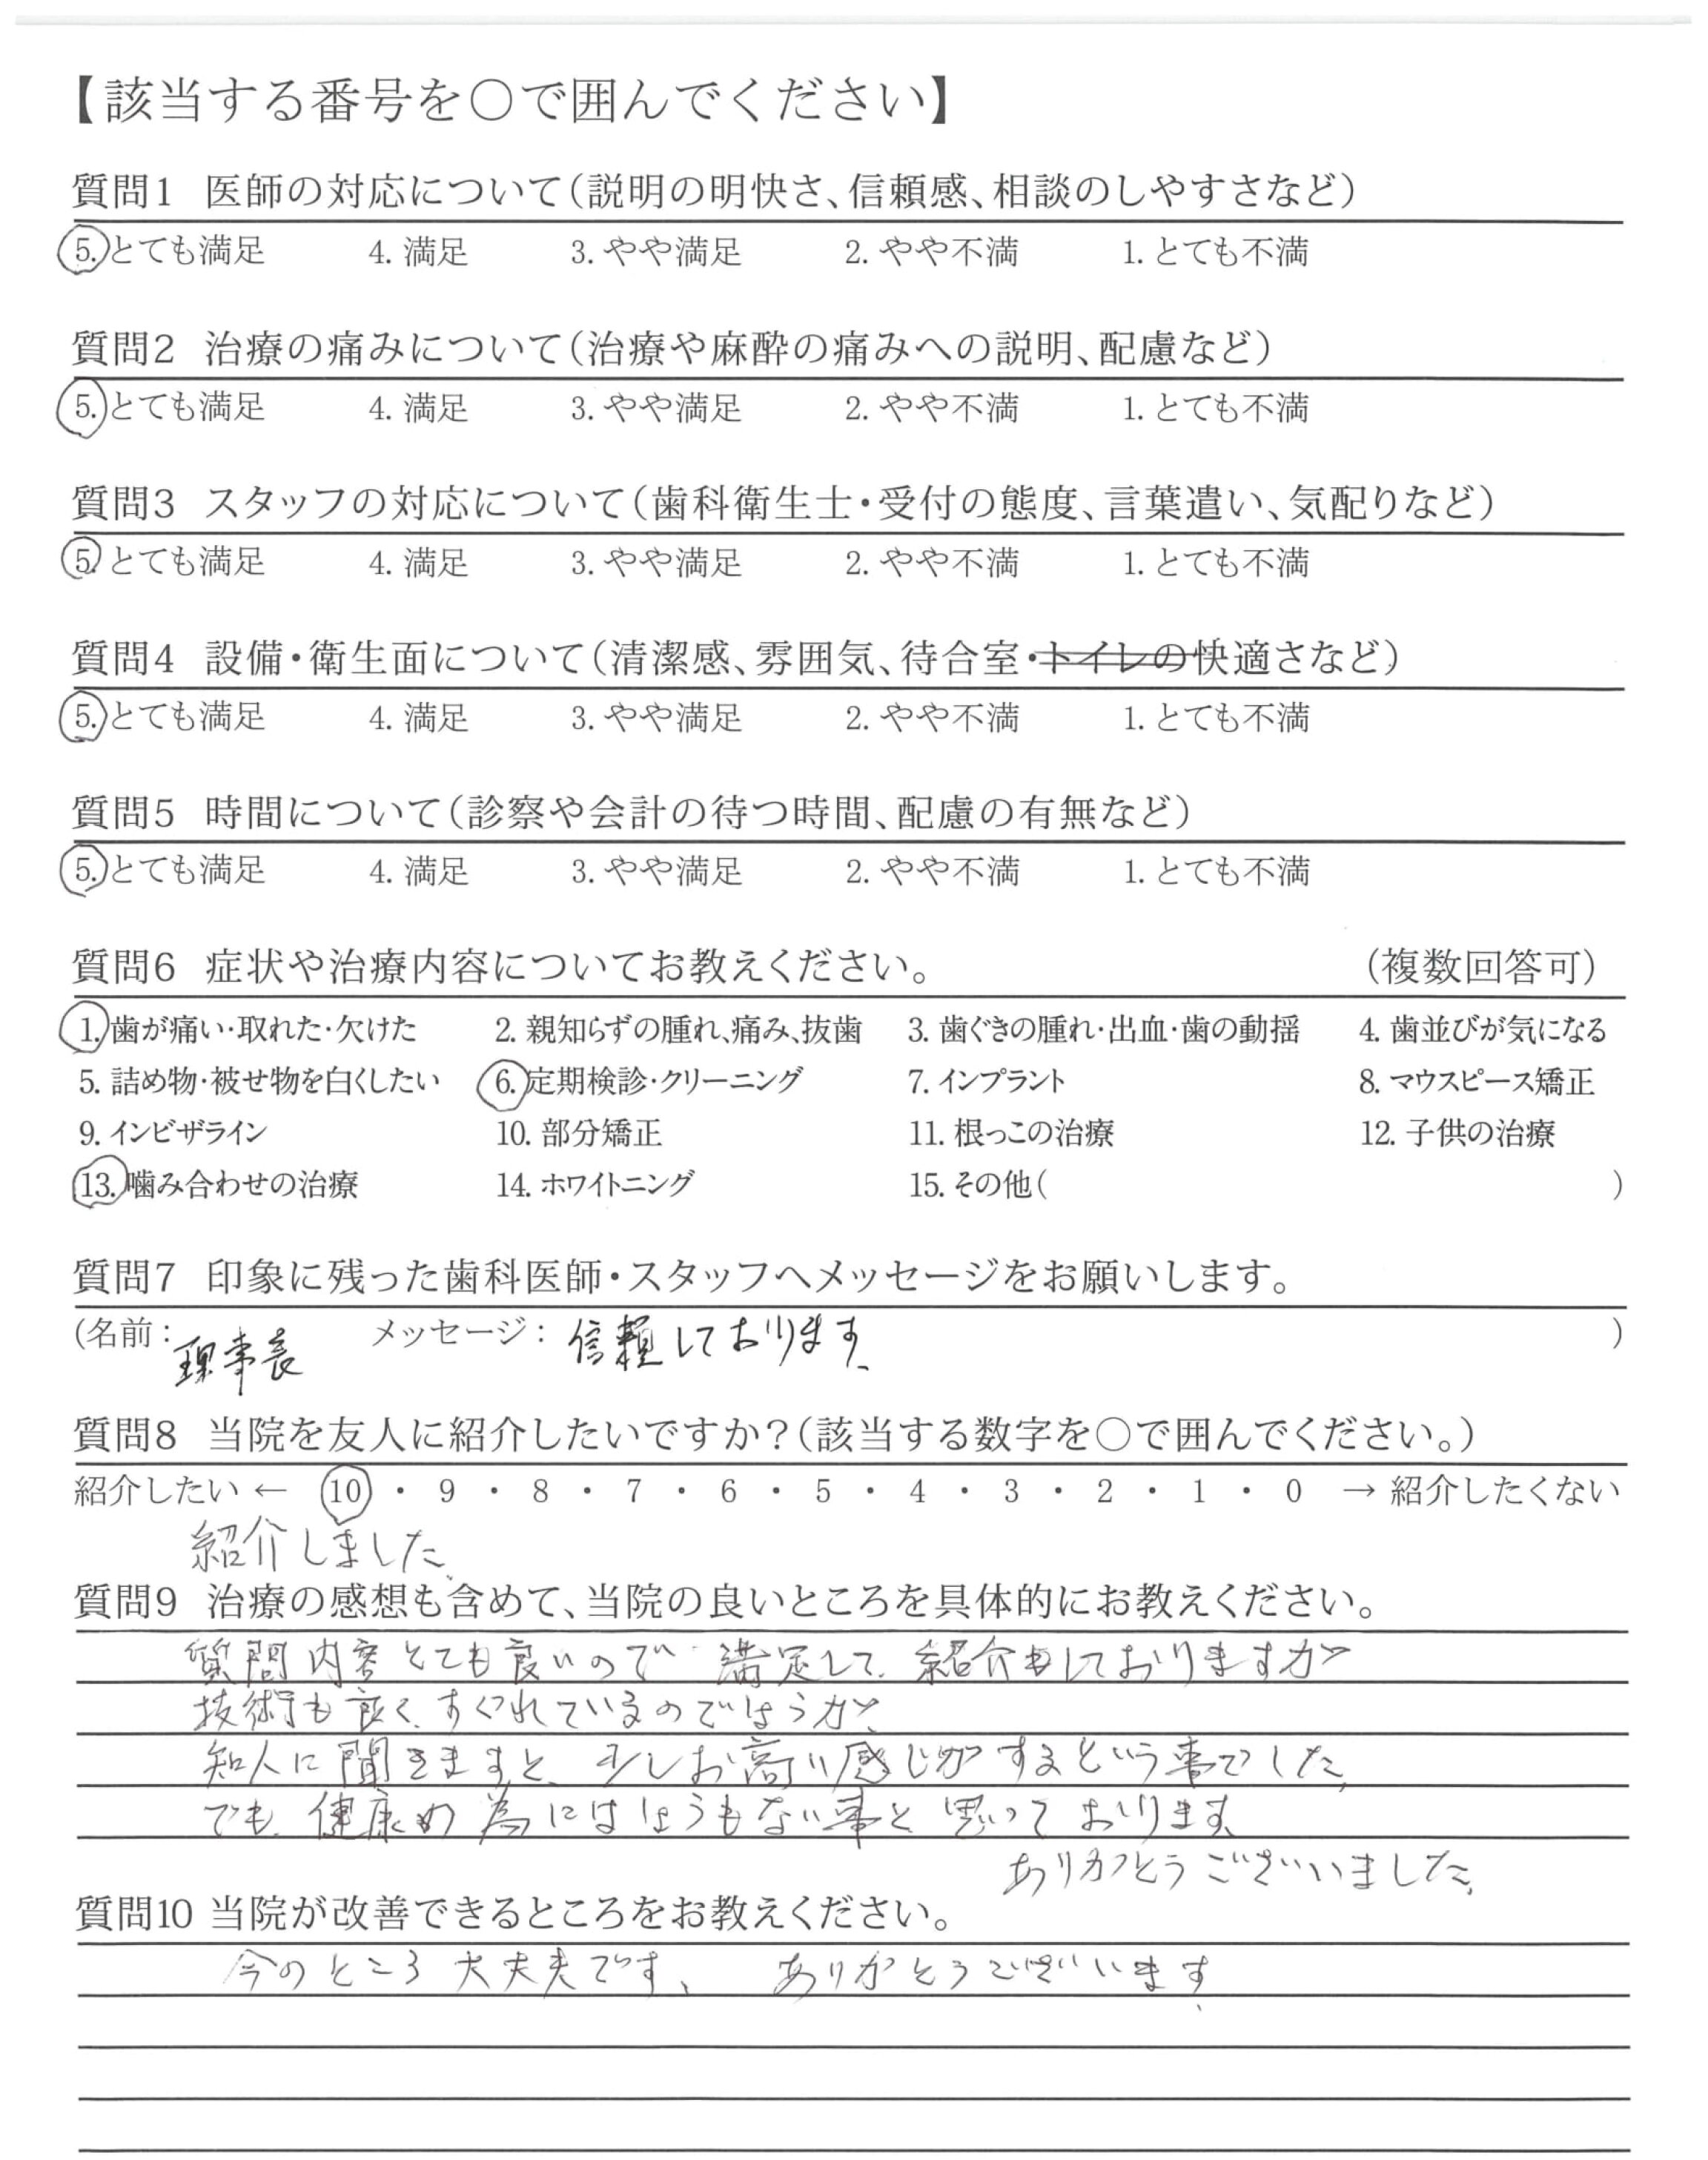 【該当する番号を○で囲んでください】
質問1 医師の対応について(説明の明快さ、信頼感、相談のしやすさなど)
5. とても満足 4. 満足 3. やや満足 2. やや不満 1. とても不満
質問2 治療の痛みについて(治療や麻酔の痛みへの説明、配慮など)
5. とても満足 4. 満足 3. やや満足 2. やや不満 1. とても不満
質問3 スタッフの対応について(歯科衛生士・受付の態度、言葉遣い、気配りなど)
5. とても満足 4. 満足 3. やや満足 2. やや不満 1. とても不満
質問4 設備・衛生面について(清潔感、雰囲気、待合室・トイレの快適さなど)
5. とても満足 4. 満足 3. やや満足 2. やや不満 1. とても不満
質問5 時間について(診察や会計の待つ時間、配慮の有無など)
5. とても満足 4. 満足 3. やや満足 2. やや不満 1. とても不満
質問6 症状や治療内容についてお教えください。 (複数回答可)
1. 歯が痛い・取れた・欠けた 2. 親知らずの腫れ、痛み、抜歯 3. 歯ぐきの腫れ・出血・歯の動揺 4. 歯並びが気になる
5. 詰め物・被せ物を白くしたい 6. 定期検診・クリーニング 7. インプラント 8. マウスピース矯正
9. インビザライン 10. 部分矯正 11. 根っこの治療 12. 子供の治療
13. 噛み合わせの治療 14. ホワイトニング 15. その他( )
質問7 印象に残った歯科医師・スタッフへメッセージをお願いします。
(名前: 理事長 メッセージ: 信頼しております。 )
質問8 当院を友人に紹介したいですか?(該当する数字を○で囲んでください。)
紹介したい ← 10 ・ 9 ・ 8 ・ 7 ・ 6 ・ 5 ・ 4 ・ 3 ・ 2 ・ 1 ・ 0 → 紹介したくない
紹介しました。
質問9 治療の感想も含めて、当院の良いところを具体的にお教えください。
質問内容とても良いので 満足して、紹介もしておりますが
技術も良く、すぐれているのでしょうが、
知人に聞きますと、少しお高い感じがするという事でした。
でも、健康の為にはしょうもない事と思っております。
ありがとうございいました。
質問10 当院が改善できるところをお教えください。
今のところ大丈夫です、 ありがとうございいます。